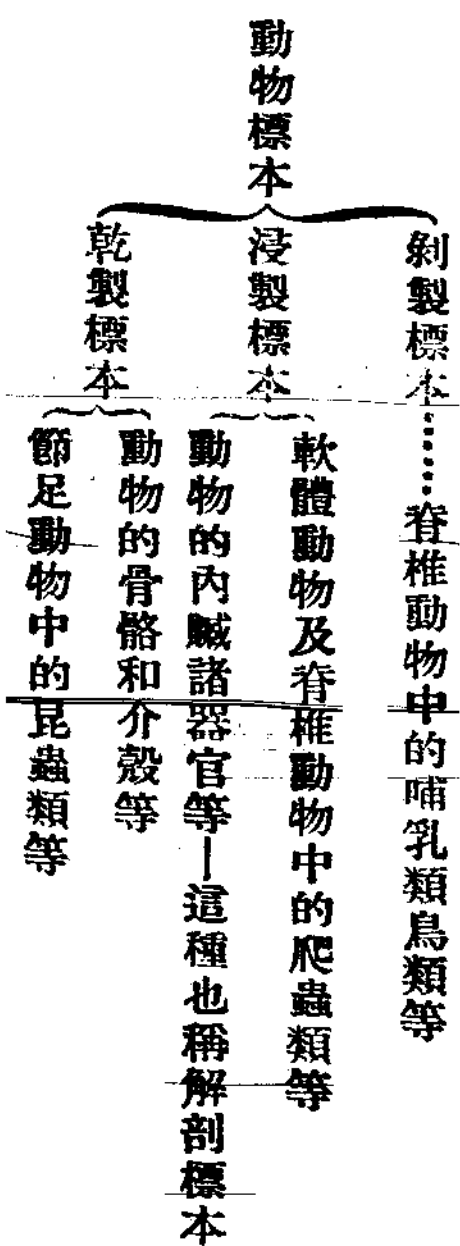 動物標本
剝製標本……脊椎動物中的哺乳類鳥類等
浸製標本
軟體動物及脊椎動物中的爬蟲類等
動物的內臟諸器官等—這種也稱解剖標本
乾製標本
動物的骨骼和介殼等
節足動物中的昆蟲類等